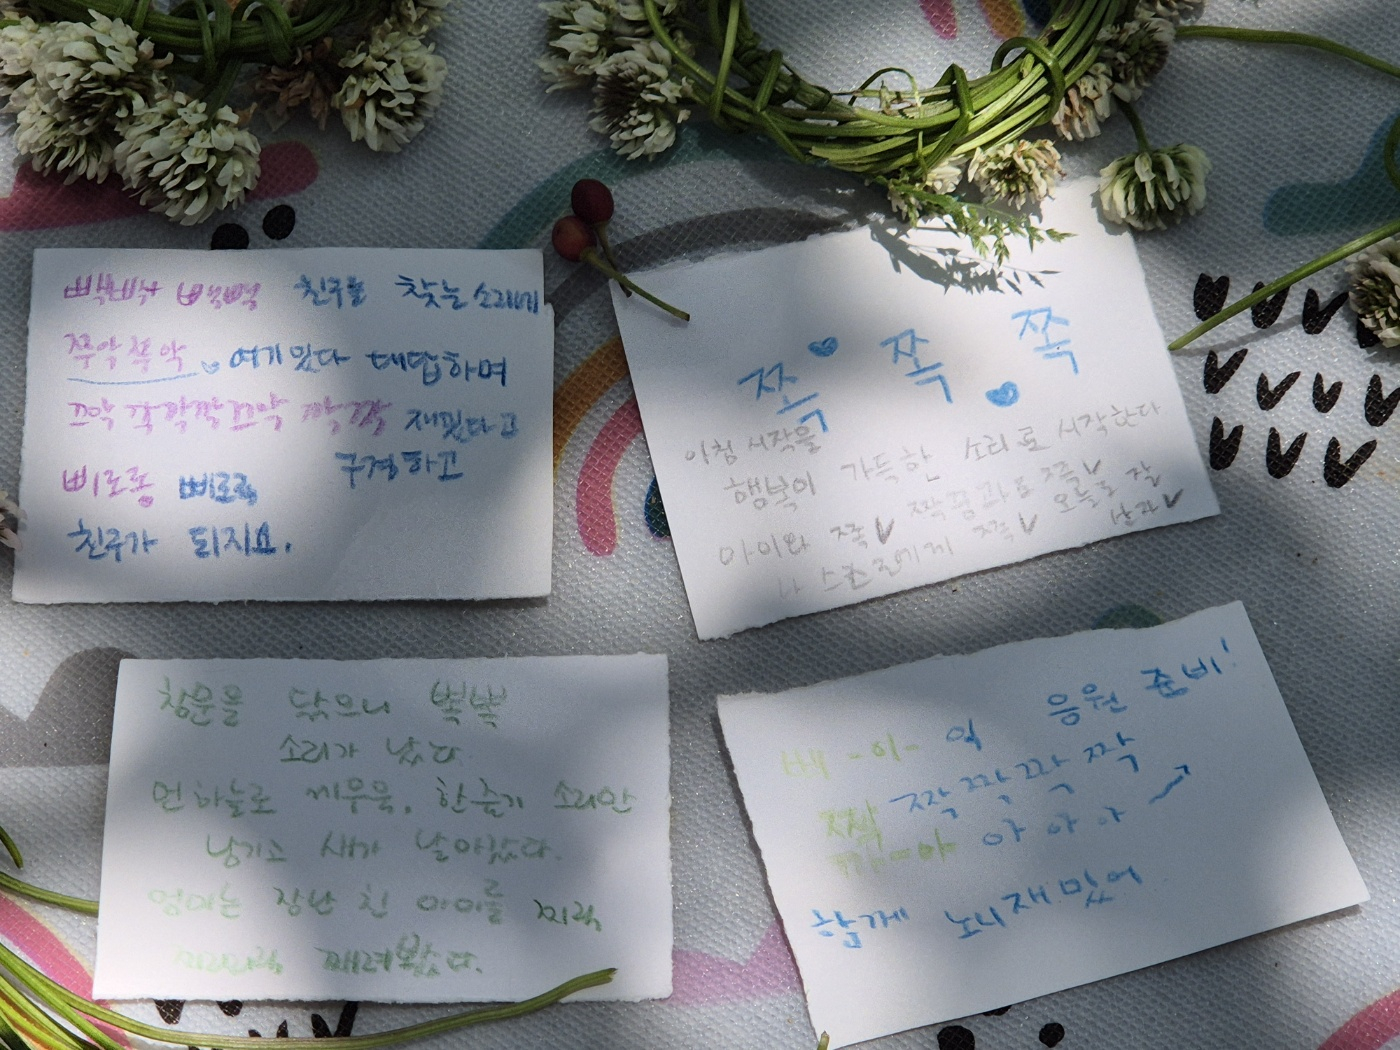 친구를 찾는 소리에
쭈악쭈악 여기있다 대답하며
재밌다고
구경하고
삐로롱 삐로롱
친구가 되지요.
쪽 쪽 쪽
아침 시작을
행복이 가득한 소리로 시작한다
아이와 쪽 짝꿍과도 쪽쪽 오늘도 잘
나 스스로에게 쪽 살자
창문을 닫으니 뽁뽁
소리가 났다.
먼 하늘로 한줄기 소리만
남기고 새가 날아갔다.
엄마는 장난 친 아이를 찌릭
찌리리릭 째려봤다.
빼-이-익 응원 준비!
짝 짝 짝 짝 짝
끼-야 아 아 아
함께 노니 재밌어